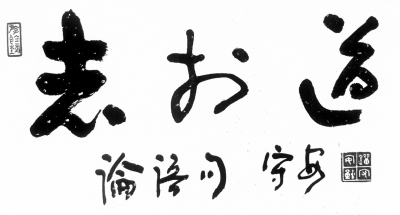 志於道
論語句 守安